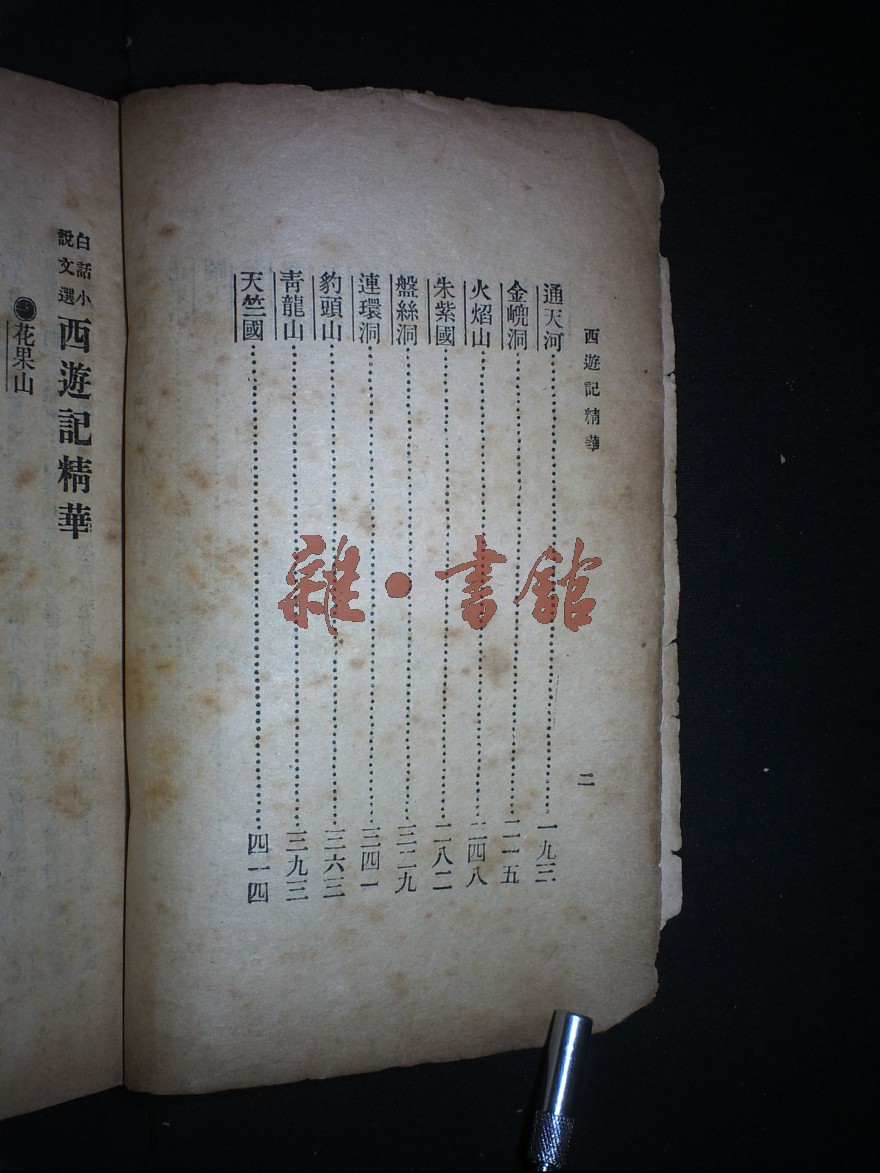 西遊記精華
二
通天河……一九三
金𡷗洞……二一五
火焰山……二四八
朱紫國……二八二
盤絲洞……三二九
連環洞……三四一
豹頭山……三六三
青龍山……三九三
天竺國……四一四
白話小說文選
西遊記精華
花果山
雜·書館